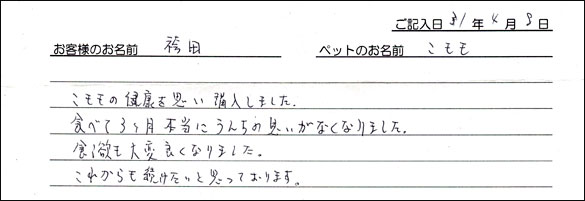 ご記入日 31年4月9日
お客様のお名前 袴田 ペットのお名前 こもも
こももの健康を思い購入しました.
食べて3ヶ月本当にうんちの臭いがなくなりました.
食欲も大変良くなりました。
これからも続けたいと思っております。